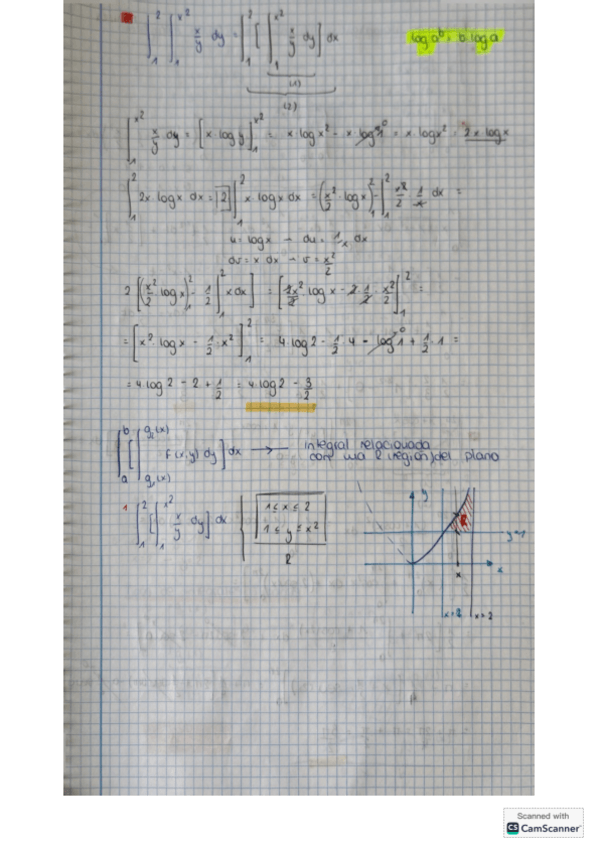 ∫₁² ∫₁^{x²} x/y dy = ∫₁² [ ∫₁^{x²} x/y dy ] dx
log a^b = b log a
(1)
(2)
∫₁^{x²} x/y dy = [x · log y]₁^{x²} = x log x² - x · log 1 = x · log x² = 2x · log x
0
∫₁² 2x · log x dx = 2 ∫₁² x · log x dx = (x²/2 · log x)₁² - ∫₁² x²/2 · 1/x dx =
u = log x → du = 1/x dx
dv = x dx → v = x²/2
2 [(x²/2 log x)₁² - 1/2 ∫₁² x dx] = [2x²/2 · log x - 2 · 1/2 · x²/2]₁² =
= [x² log x - 1/2 · x²]₁² = 4 log 2 - 1/2 · 4 - log 1 + 1/2 · 1 =
0
= 4 log 2 - 2 + 1/2 = 4 log 2 - 3/2
∫ₐᵇ [ ∫_{g₁(x)}^{g₂(x)} f(x,y) dy ] dx → integral relacionada
con una R (región) del plano
1 ∫₁² [ ∫₁^{x²} x/y dy ] dx
1 ≤ x ≤ 2
1 ≤ y ≤ x²
R
y
R
y=1
x
x
x=1
x=2
Scanned with
CS CamScanner